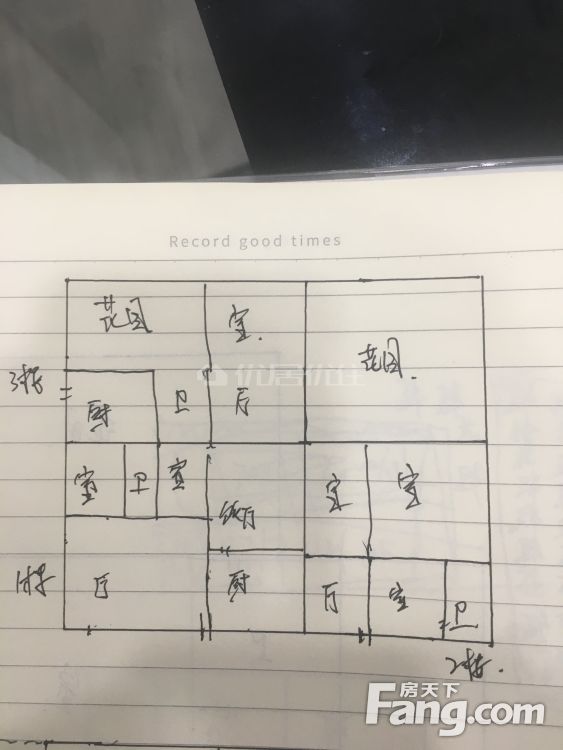 Record good times
花园
室
花园
优居优住
厨
卫
厅
室
卫
室
饭厅
室
室
厅
厨
厅
室
卫
房天下
Fang.com